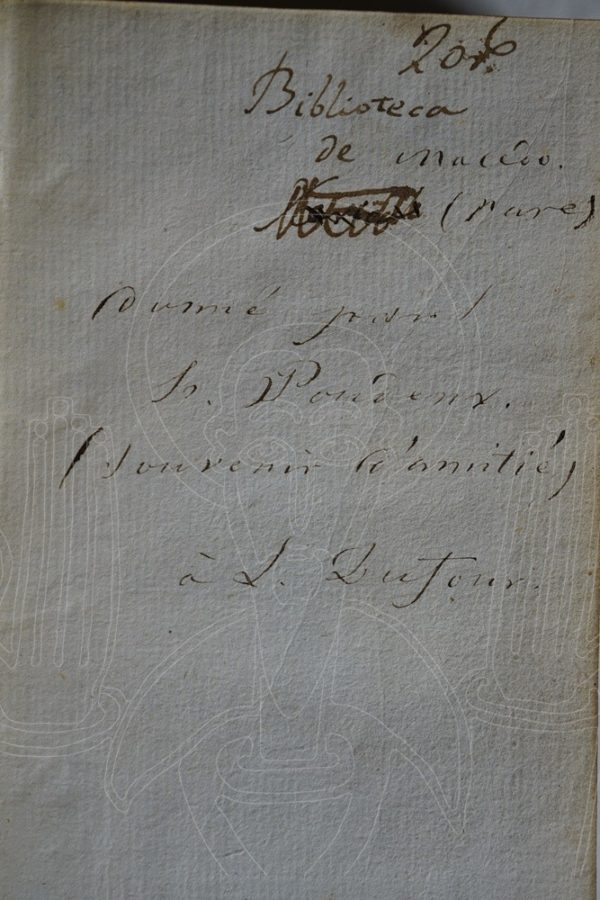 206
Biblioteca
de macedo.
(rare)
donné par
h. Poudenx.
(souvenir d'amitié)
à L. Dufour.